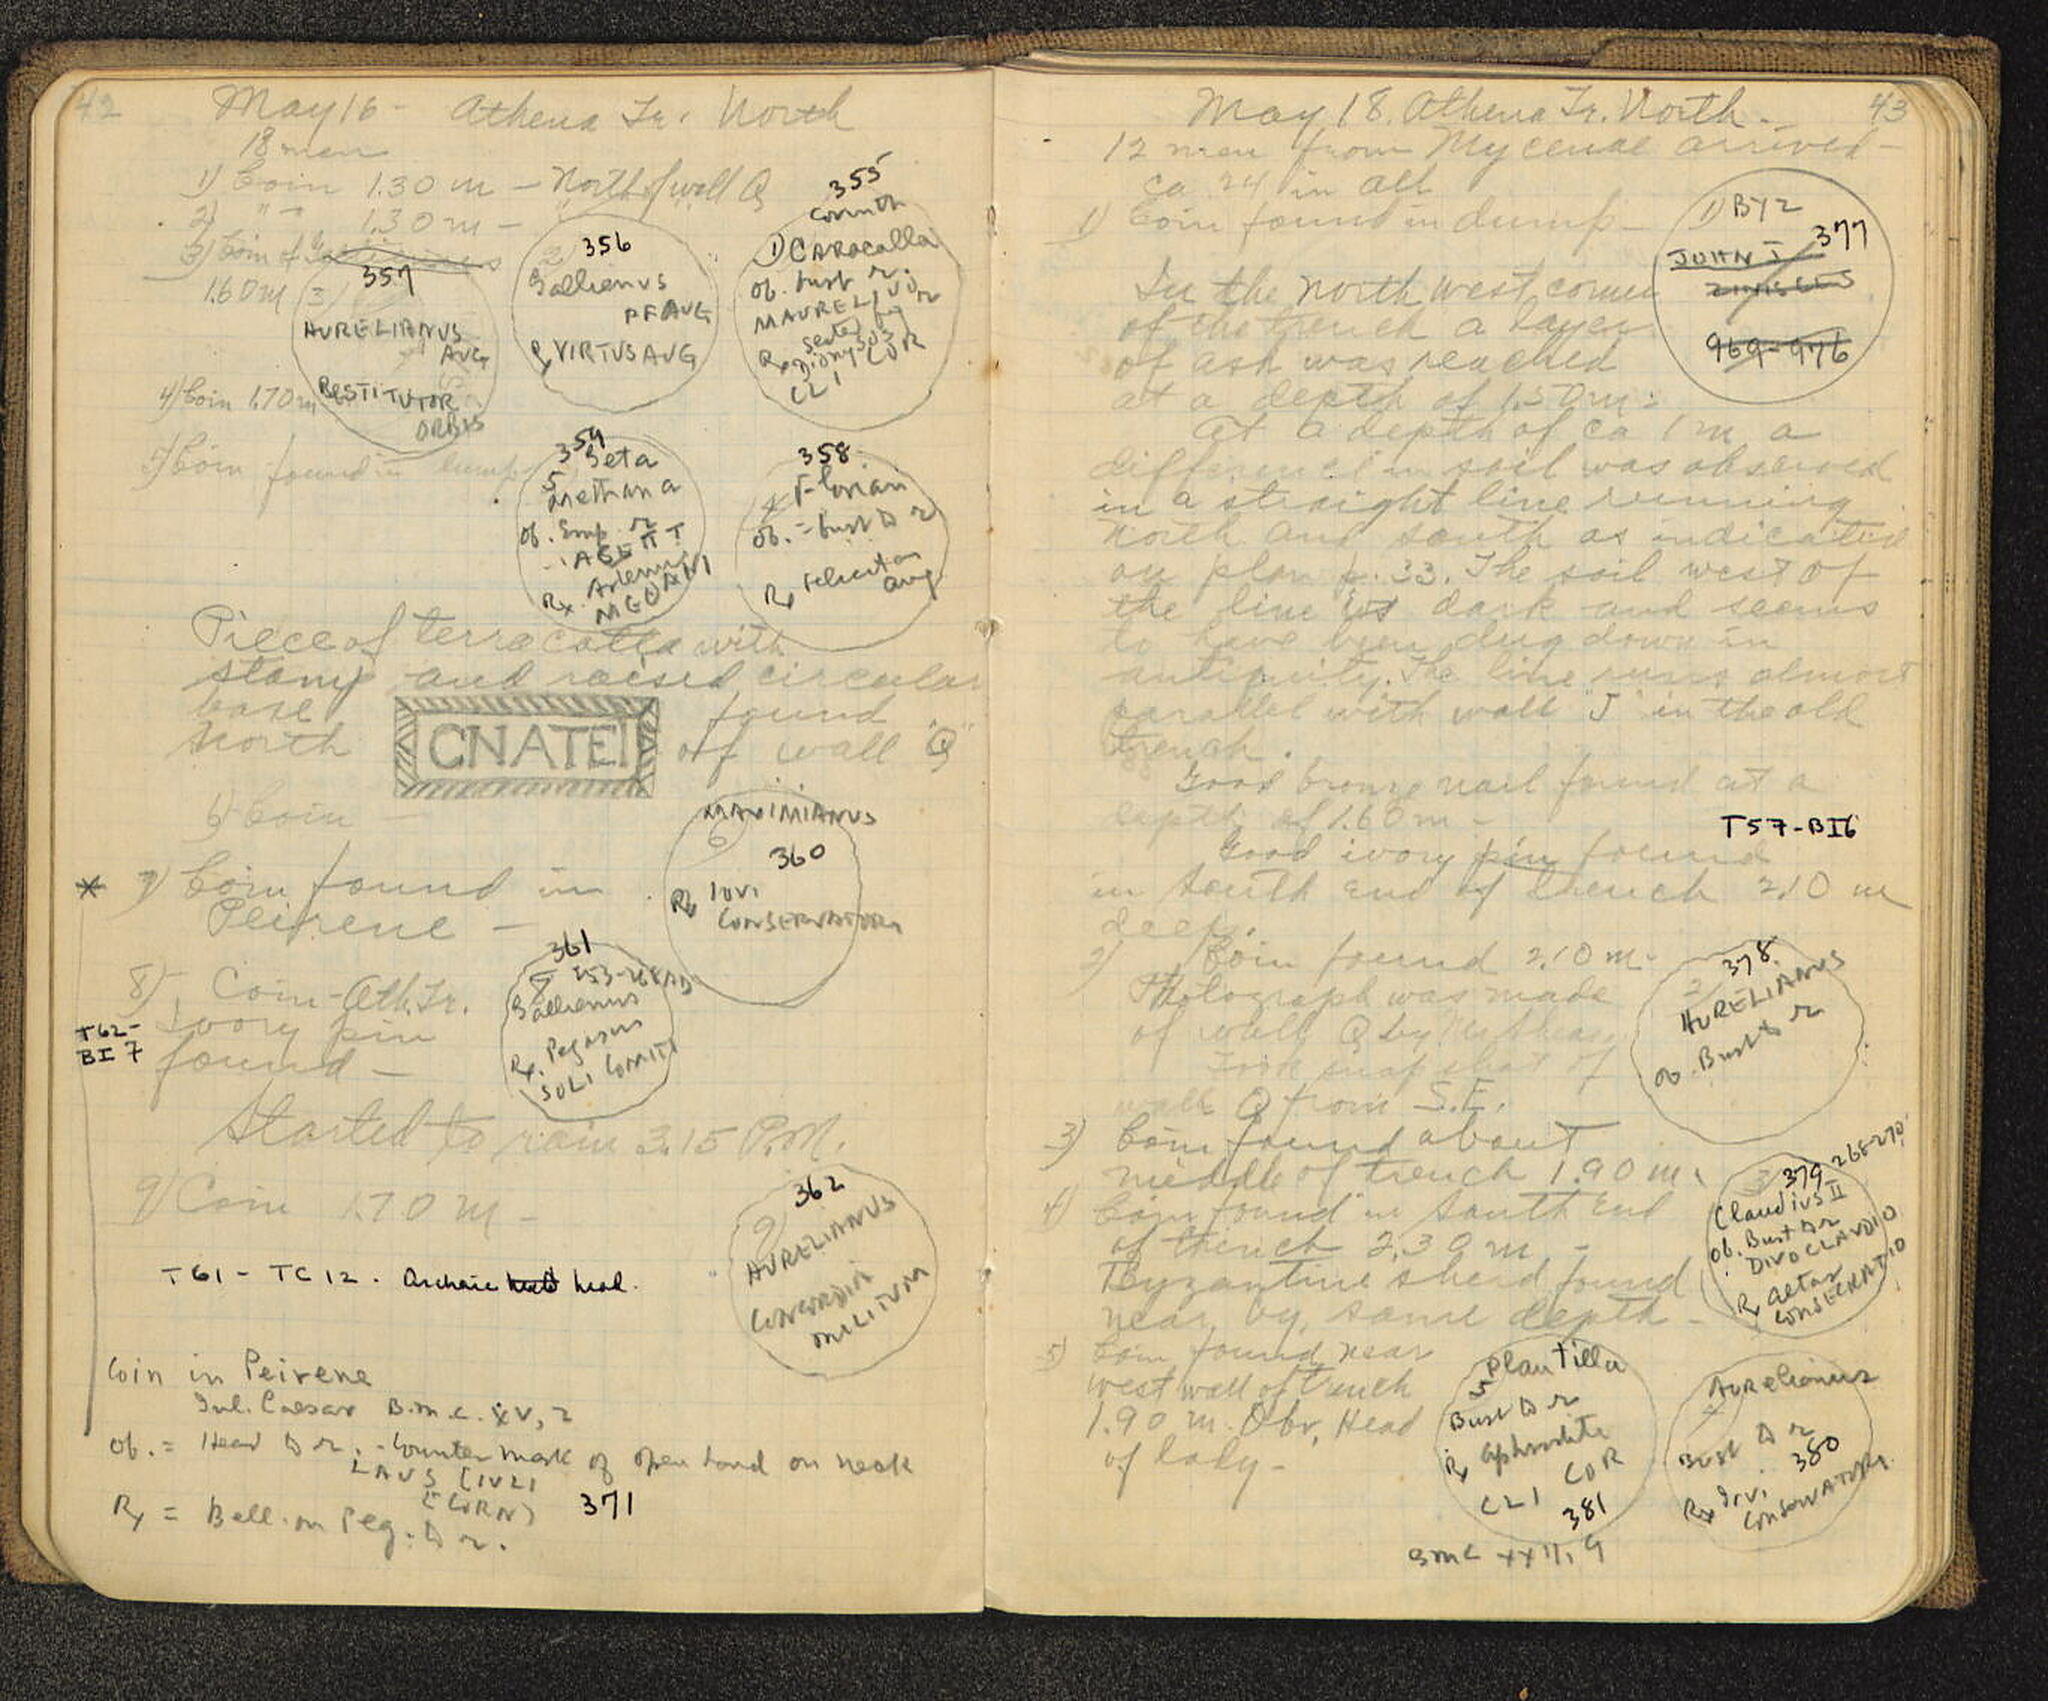 42
May 16 - Athena Tr. North
18 men
1) Coin 1.30 m - North of wall Q
2) " " 1.30 m -
3) Coin of
1.60 m
357
3
AURELIANUS
AUG
RESTITUTOR
ORBIS
2
356
Gallienus
PFAUG
Rx VIRTUS AUG
355
Corinth
1) CARACALLA
Ob. bust r.
MAURELI
seated
Rx Dionysos
CLI COR
4) Coin 1.70 m
5) Coin found in dump
359
Geta
5
Methana
Ob. Emp. r
Rx. Artemis
358
4 Florian
Ob. - bust to r
Rx Felicitas
Aug
Piece of terracotta with
stamp and raised circular
base found
North of wall "Q"
CNATEI
6) Coin -
MAXIMIANUS
6
360
Rx IOVI
CONSERVATORI
* 7) Coin found in
Peirene -
8) Coin - Ath. Tr.
Ivory pin
found -
T62-
BI 7
361
Gallienus
Rx. Pegasus
SOLI COMITI
Started to rain 3.15 P.M.
9) Coin 1.70 m -
362
9
AURELIANUS
CONCORDIA
MILITUM
T61 - TC 12. Archaic head.
Coin in Peirene
Jul. Caesar B.M.C. XV, 2
Ob. = Head to r. - Counter mark of open hand on neck
LAUS [IULI
[CORN]
371
Rx = Bell. on Peg. to r.
43
May 18. Athena Tr. North -
12 men from Mycenae arrived -
ca 24 in all
1) Coin found in dump -
1) BYZ
377
JOHN I
ZIMISCES
969-976
In the north west corner
of the trench a layer
of ash was reached
at a depth of 1.50 m.
At a depth of ca 1 m a
difference in soil was observed
in a straight line running
North and south as indicated
on plan p. 33. The soil west of
the line is dark and seems
to have been dug down in
antiquity. The line runs almost
parallel with wall "J" in the old
trench.
Good bronze nail found at a
depth of 1.60 m -
T57-BI6
Good ivory pin found
in South End of trench 2.10 m
deep.
2) Coin found 2.10 m -
378
2
AURELIANUS
Ob. Bust to r
Photograph was made
of wall Q by
Took snap shot of
wall Q from S.E.
3) Coin found about
middle of trench 1.90 m.
3
379 268-270
Claudius II
Ob. Bust to r
DIVO CLAUDIO
Rx altar
CONSECRATIO
4) Coin found in South End
of trench 2.30 m -
Byzantine sherd found
near by, same depth -
5) Coin found near
west wall of trench
1.90 m. Obv. Head
of lady -
Plautilla
5
Bust to r
Rx Aphrodite
CLI COR
381
BMC XXII, 9
Aurelianus
4
Bust to r
380
Rx Iovi
CONSERVATORI